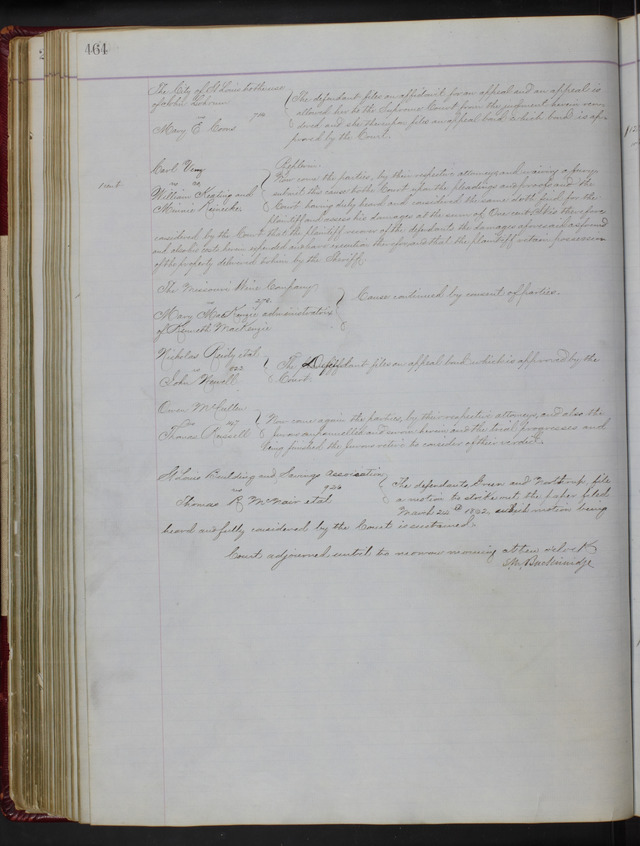 464
The City of St Louis to the use
of John
vs
Mary E. Coons
The defendant files an affidavit for an appeal and an appeal is
allowed her to the Supreme Court from the judgment herein ren-
dered and she thereupon files an appeal bond which bond is ap-
proved by the Court.
Carl
vs
William Keating and
Minnie Reinecker
Replevin
Now come the parties, by their respective attorneys and waiving a jury
submit this cause to the Court upon the pleadings and proofs and the
Court having duly heard and considered the same doth find for the
plaintiff and assess his damages at the sum of One cent. It is therefore
considered by the Court that the plaintiff recover of the defendants the damages aforesaid assessed
and also his costs herein expended and have execution therefor and that the plaintiff retain possession
of the property delivered to him by the Sheriff.
The Missouri Wine Company
vs
Mary MacKenzie administratrix
of Kenneth MacKenzie
Cause continued by consent of parties.
Nicholas Reidy et al
vs 822
John Newell
The Defendant files an appeal bond which is approved by the
Court.
Owen McCullen
vs
Thomas Russell
Now come again the parties, by their respective attorneys, and also the
jurors empanelled and sworn herein and the trial progresses and
being finished the jurors retire to consider of their verdict.
St Louis Building and Savings Association
vs 926
Thomas R McNair et al
The defendants Green and Northrup file
a motion to strike out the paper filed
March 22d 1872, which motion being
heard and fully considered by the Court is sustained.
Court adjourned until to morrow morning at ten o'clock